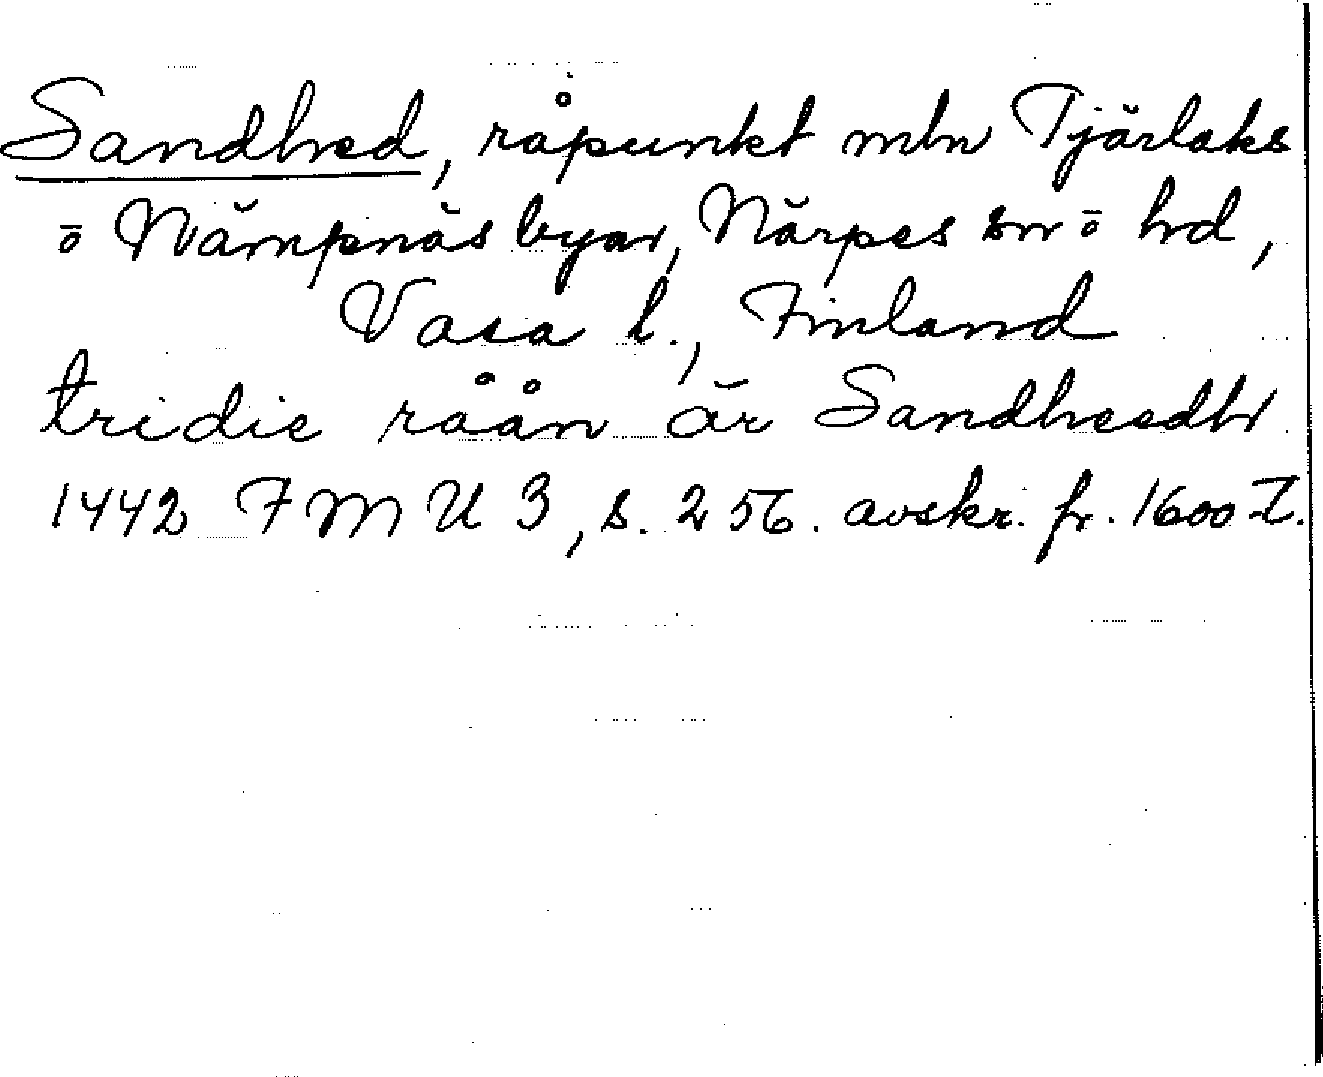 Sandhed, råpunkt mln Tjärlaks
ö Nämpnäs byar, Närpes sn ö hd,
Vasa l., Finland
tridie råån är Sandheedh
1442 FMU 3, s. 256. avskr. fr. 1600-t.